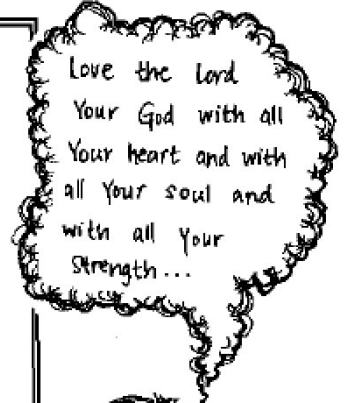 Love the Lord
Your God with all
Your heart and with
all Your soul and
with all Your
Strength...